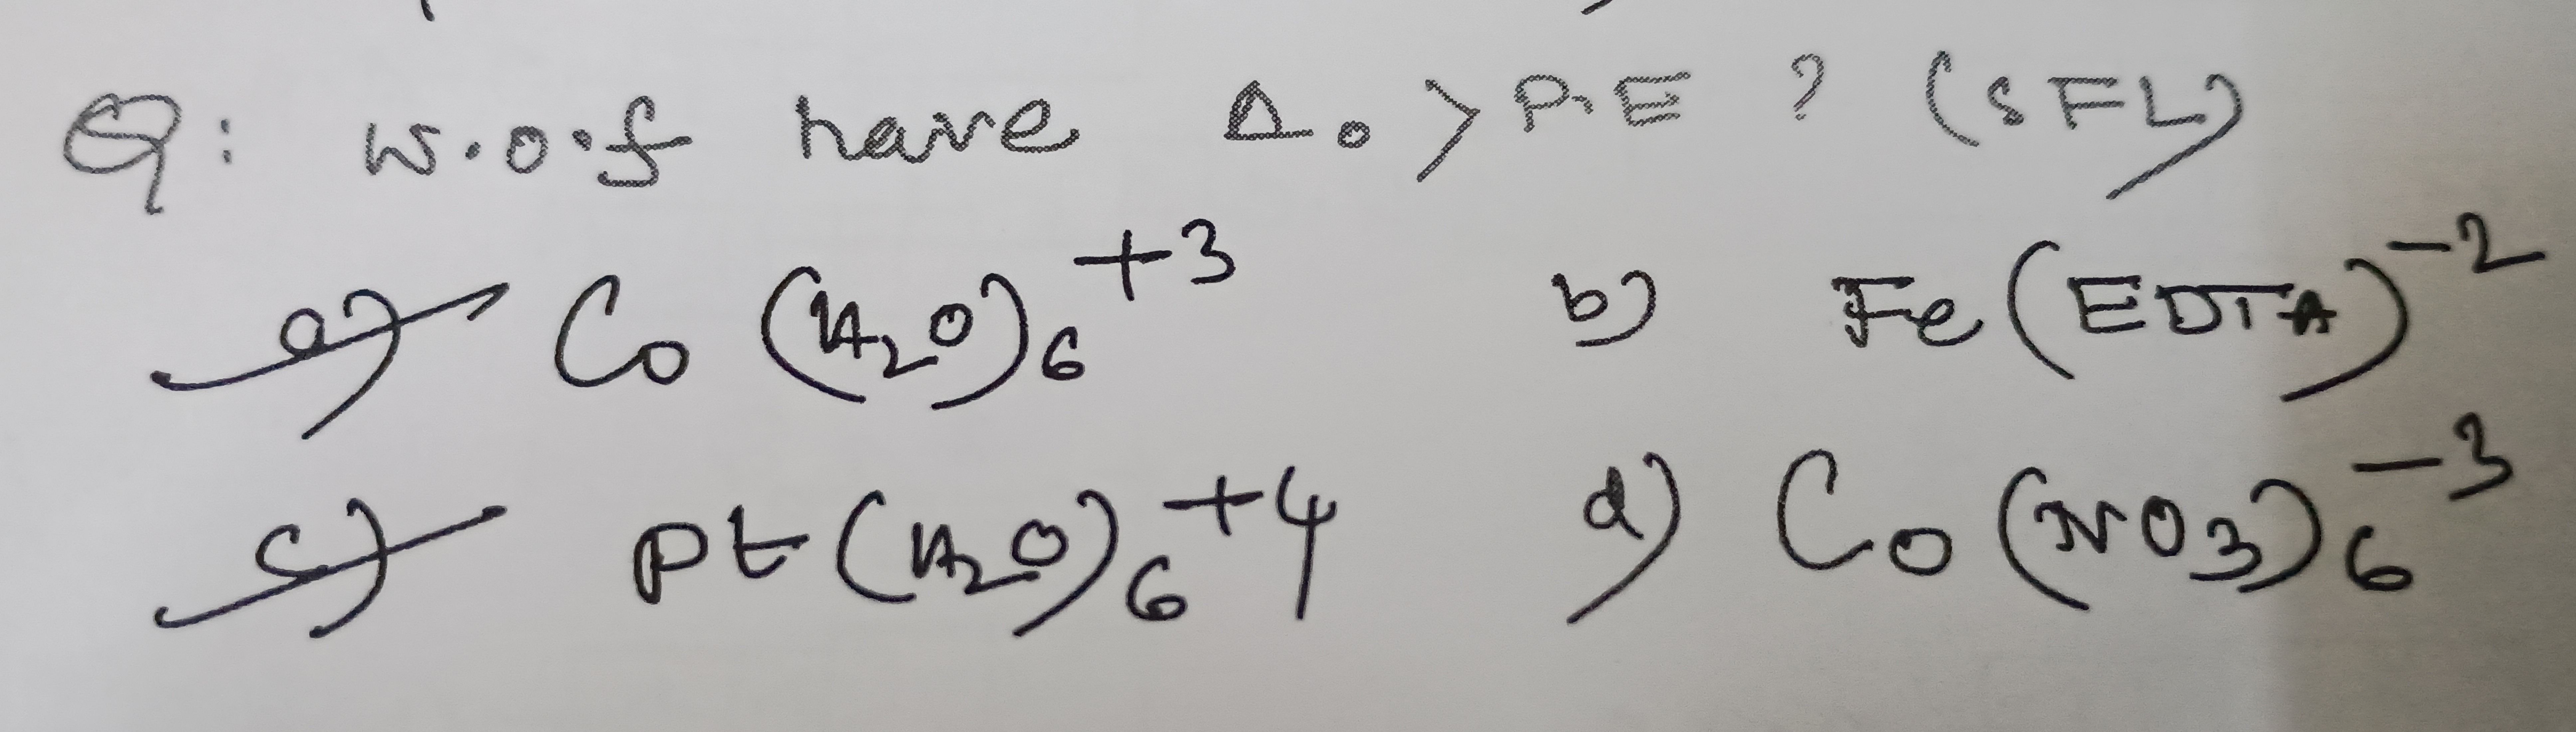 Q: w.o.f have Δ₀ > P.E ? (SFL)
a) Co(H₂O)₆⁺³ b) Fe(EDTA)⁻²
c) Pt(H₂O)₆⁺⁴ d) Co(NO₃)₆⁻³